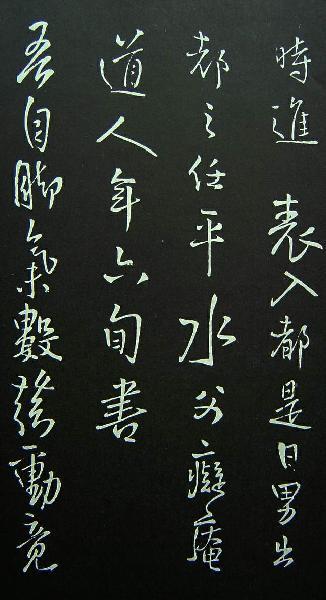 時進 表入都是日男出
都之任平水父癡庵
道人年六旬書
吾自脚氣數發動竟